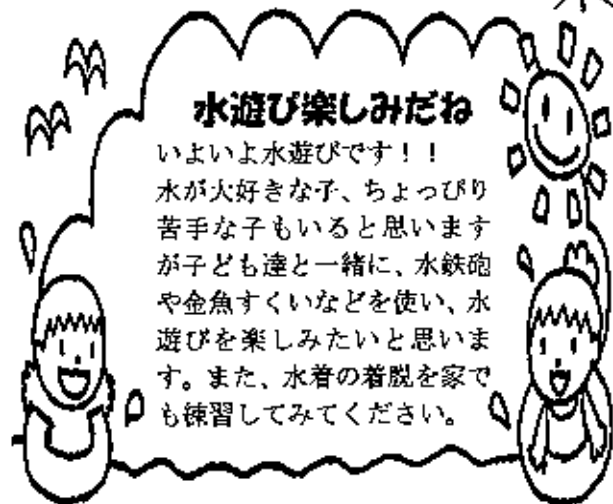 水遊び楽しみだね
いよいよ水遊びです！！
水が大好きな子、ちょっぴり
苦手な子もいると思います
が子ども達と一緒に、水鉄砲
や金魚すくいなどを使い、水
遊びを楽しみたいと思いま
す。また、水着の着脱を家で
も練習してみてください。